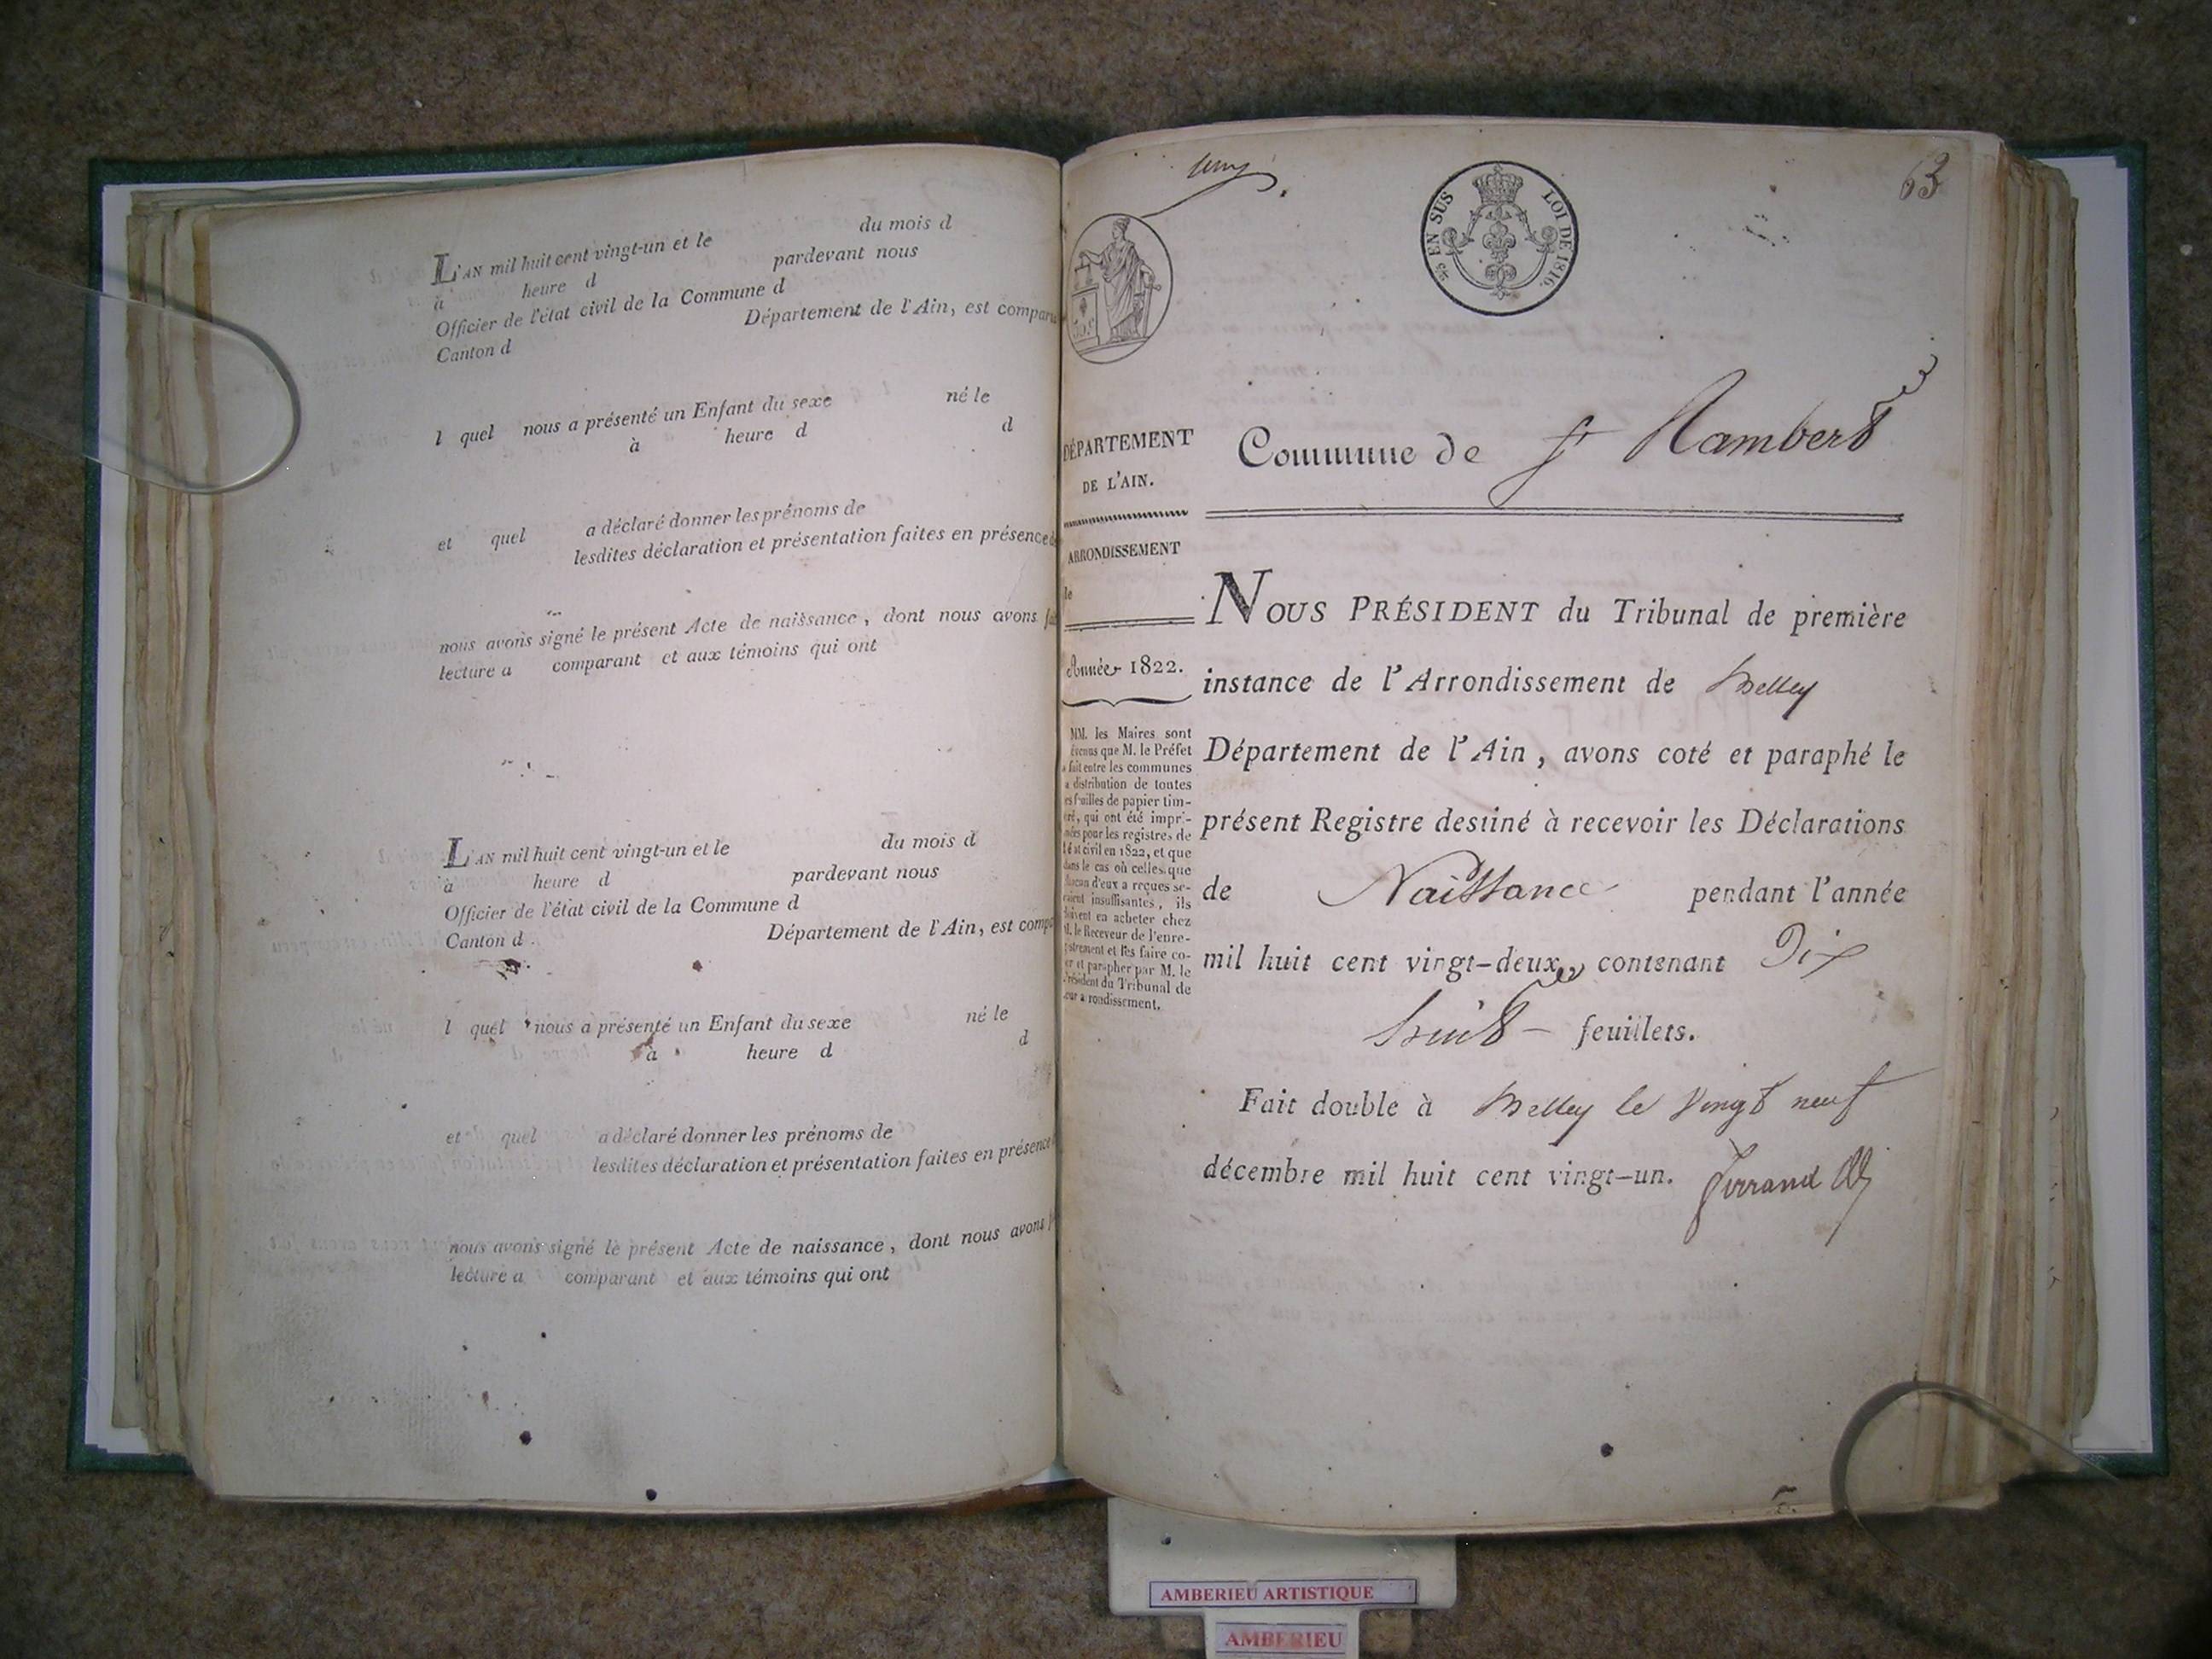 L'AN mil huit cent vingt-un et le du mois d
à heure d pardevant nous
Officier de l'état civil de la Commune d
Canton d Département de l'Ain, est comparu
l quel nous a présenté un Enfant du sexe né le
à heure d d
et quel a déclaré donner les prénoms de
lesdites déclaration et présentation faites en présence
nous avons signé le présent Acte de naissance, dont nous avons
lecture a comparant et aux témoins qui ont
L'AN mil huit cent vingt-un et le du mois d
à heure d pardevant nous
Officier de l'état civil de la Commune d
Canton d Département de l'Ain, est comp
l quel nous a présenté un Enfant du sexe né le
à heure d d
et quel a déclaré donner les prénoms de
lesdites déclaration et présentation faites en présence
nous avons signé le présent Acte de naissance, dont nous avons
lecture a comparant et aux témoins qui ont
63
EN SUS LOI DE 1816.
DÉPARTEMENT
DE L'AIN.
ARRONDISSEMENT
de
Année 1822.
MM. les Maires sont
que M. le Préfet
fait entre les communes
distribution de toutes
feuilles de papier tim-
bré, qui ont été impri-
mées pour les registres de
l'état civil en 1822, et que
dans le cas où celles que
chacun d'eux a reçues se-
raient insuffisantes, ils
doivent en acheter chez
M. le Receveur de l'enre-
gistrement et les faire co-
ter et parapher par M. le
Président du Tribunal de
leur arrondissement.
Commune de St Rambert
NOUS PRÉSIDENT du Tribunal de première
instance de l'Arrondissement de Belley
Département de l'Ain, avons coté et paraphé le
présent Registre destiné à recevoir les Déclarations
de Naissance pendant l'année
mil huit cent vingt-deux, contenant Dix
huit feuillets.
Fait double à Belley le vingt neuf
décembre mil huit cent vingt-un.
AMBERIEU ARTISTIQUE
AMBERIEU